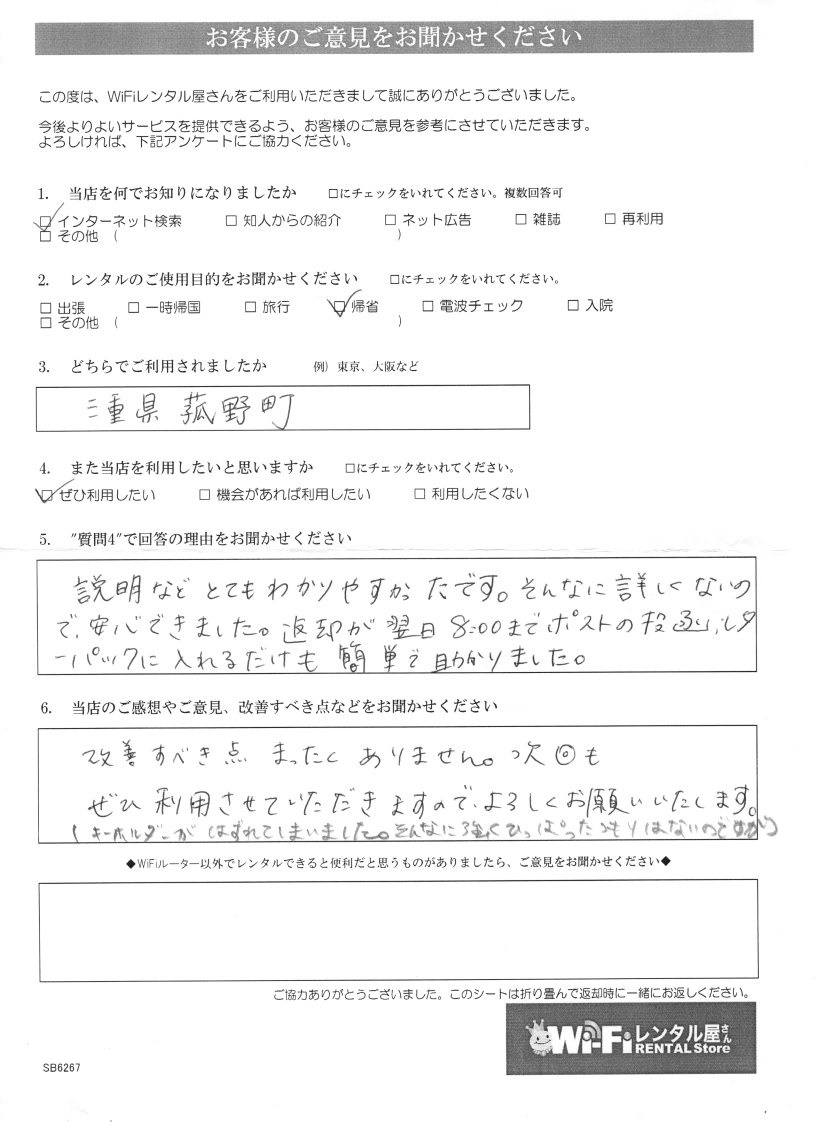 お客様のご意見をお聞かせください
この度は、WiFiレンタル屋さんをご利用いただきまして誠にありがとうございました。
今後よりよいサービスを提供できるよう、お客様のご意見を参考にさせていただきます。
よろしければ、下記アンケートにご協力ください。
1. 当店を何でお知りになりましたか □にチェックをいれてください。複数回答可
☑ インターネット検索 □ 知人からの紹介 □ ネット広告 □ 雑誌 □ 再利用
□ その他 ( )
2. レンタルのご使用目的をお聞かせください □にチェックをいれてください。
□ 出張 □ 一時帰国 □ 旅行 ☑ 帰省 □ 電波チェック □ 入院
□ その他 ( )
3. どちらでご利用されましたか 例）東京、大阪など
三重県 菰野町
4. また当店を利用したいと思いますか □にチェックをいれてください。
☑ ぜひ利用したい □ 機会があれば利用したい □ 利用したくない
5. "質問4"で回答の理由をお聞かせください
説明など とてもわかりやすかったです。そんなに詳しくないの
で、安心できました。返却が 翌日 8:00までポストの投函、レタ
ーパックに入れるだけも 簡単で助かりました。
6. 当店のご感想やご意見、改善すべき点などをお聞かせください
改善すべき点 まったく ありません。次回も
ぜひ利用させていただきますので、よろしくお願いいたします。
(キーホルダーが はずれてしまいました。そんなに強くひっぱったつもりはないのですが)
◆WiFiルーター以外でレンタルできると便利だと思うものがありましたら、ご意見をお聞かせください◆
ご協力ありがとうございました。このシートは折り畳んで返却時に一緒にお返しください。
Wi-Fiレンタル屋さん
RENTAL Store
SB6267